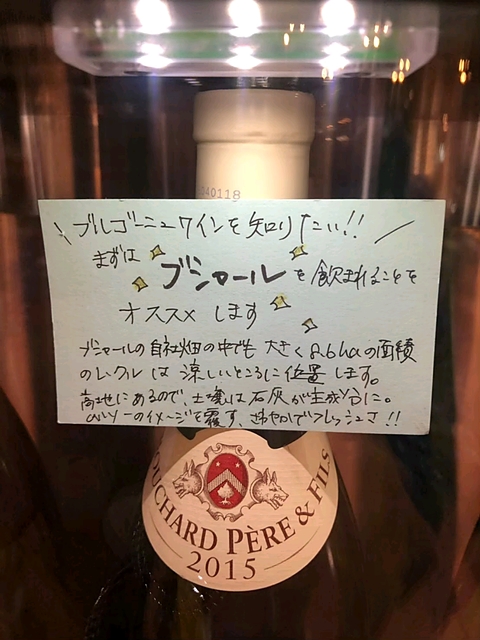 540118
\ ブルゴーニュワインを知りたい!! /
まずは
ブシャール を飲まれることを
オススメ します
ブシャールの自社畑の中でも 大きく 2.6haの面積
のレ・クル は 涼しいところに位置 します。
高地にあるので、土壌は 石灰が主成分に。
のイメージを覆す、さわやかでフレッシュさ!!
BOUCHARD PÈRE & FILS
2015